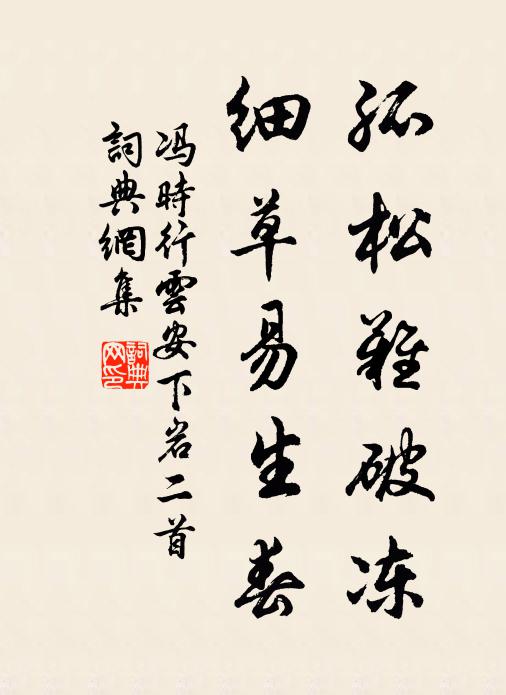 孤松難破冻
细草易生春
冯時行雲安下岩二首
詞典網集
詞典網印